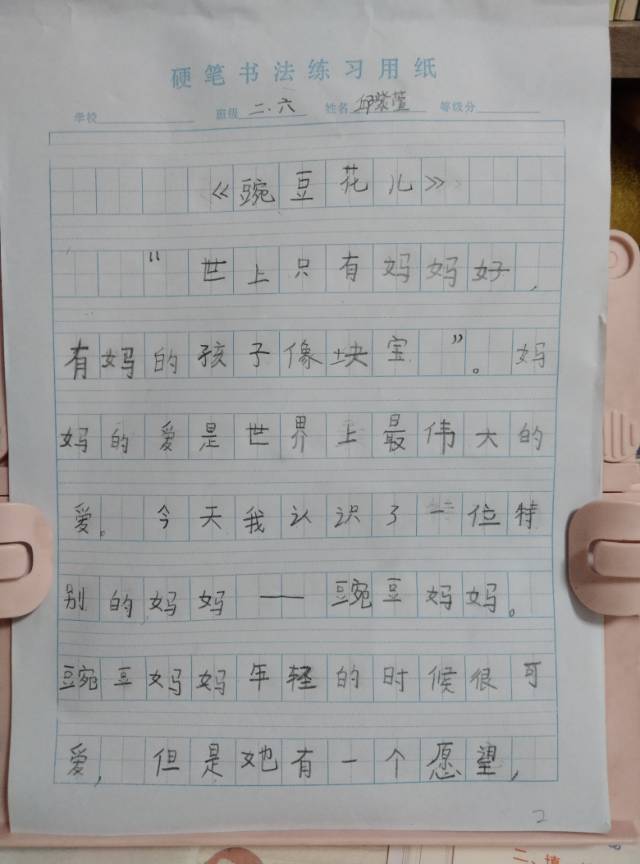 硬笔书法练习用纸
学校 班级 二.六 姓名 邱紫萱 等级分
《豌豆花儿》
“世上只有妈妈好,
有妈的孩子像块宝”。妈
妈的爱是世界上最伟大的
爱。今天我认识了一位特
别的妈妈——豌豆妈妈。
豌豆妈妈年轻的时候很可
爱,但是她有一个愿望,
2